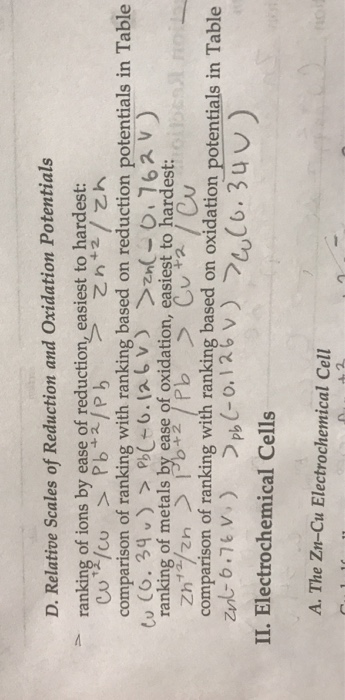 D. Relative Scales of Reduction and Oxidation Potentials
ranking of ions by ease of reduction, easiest to hardest:
Cu+2/Cu > Pb+2/Pb > Zn+2/Zn
comparison of ranking with ranking based on reduction potentials in Table
Cu (0.34v) > Pb(-0.126V) > Zn(-0.762V)
ranking of metals by ease of oxidation, easiest to hardest:
Zn+2/Zn > Pb+2/Pb > Cu+2/Cu
comparison of ranking with ranking based on oxidation potentials in Table
Zn(-0.76V.) > Pb(-0.126V) > Cu(0.34V)
II. Electrochemical Cells
A. The Zn-Cu Electrochemical Cell